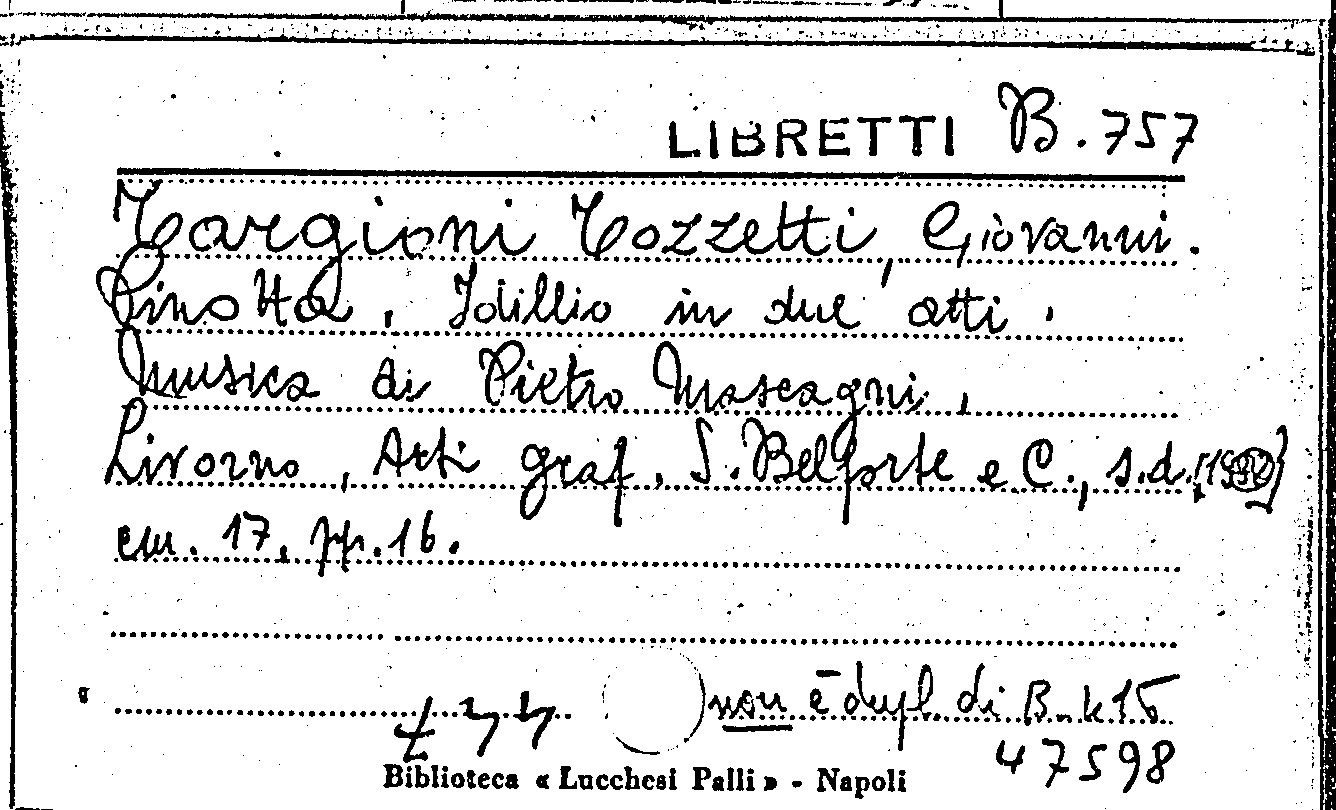 LIBRETTI B. 757
Targioni Tozzetti, Giovanni.
Pinotta, Idillio in due atti.
Musica di Pietro Mascagni,
Livorno, Arti graf. S. Belforte e C., s.d.
cm. 17, pp. 16.
non è dupl. di B. k 15
47598
Biblioteca « Lucchesi Palli » - Napoli